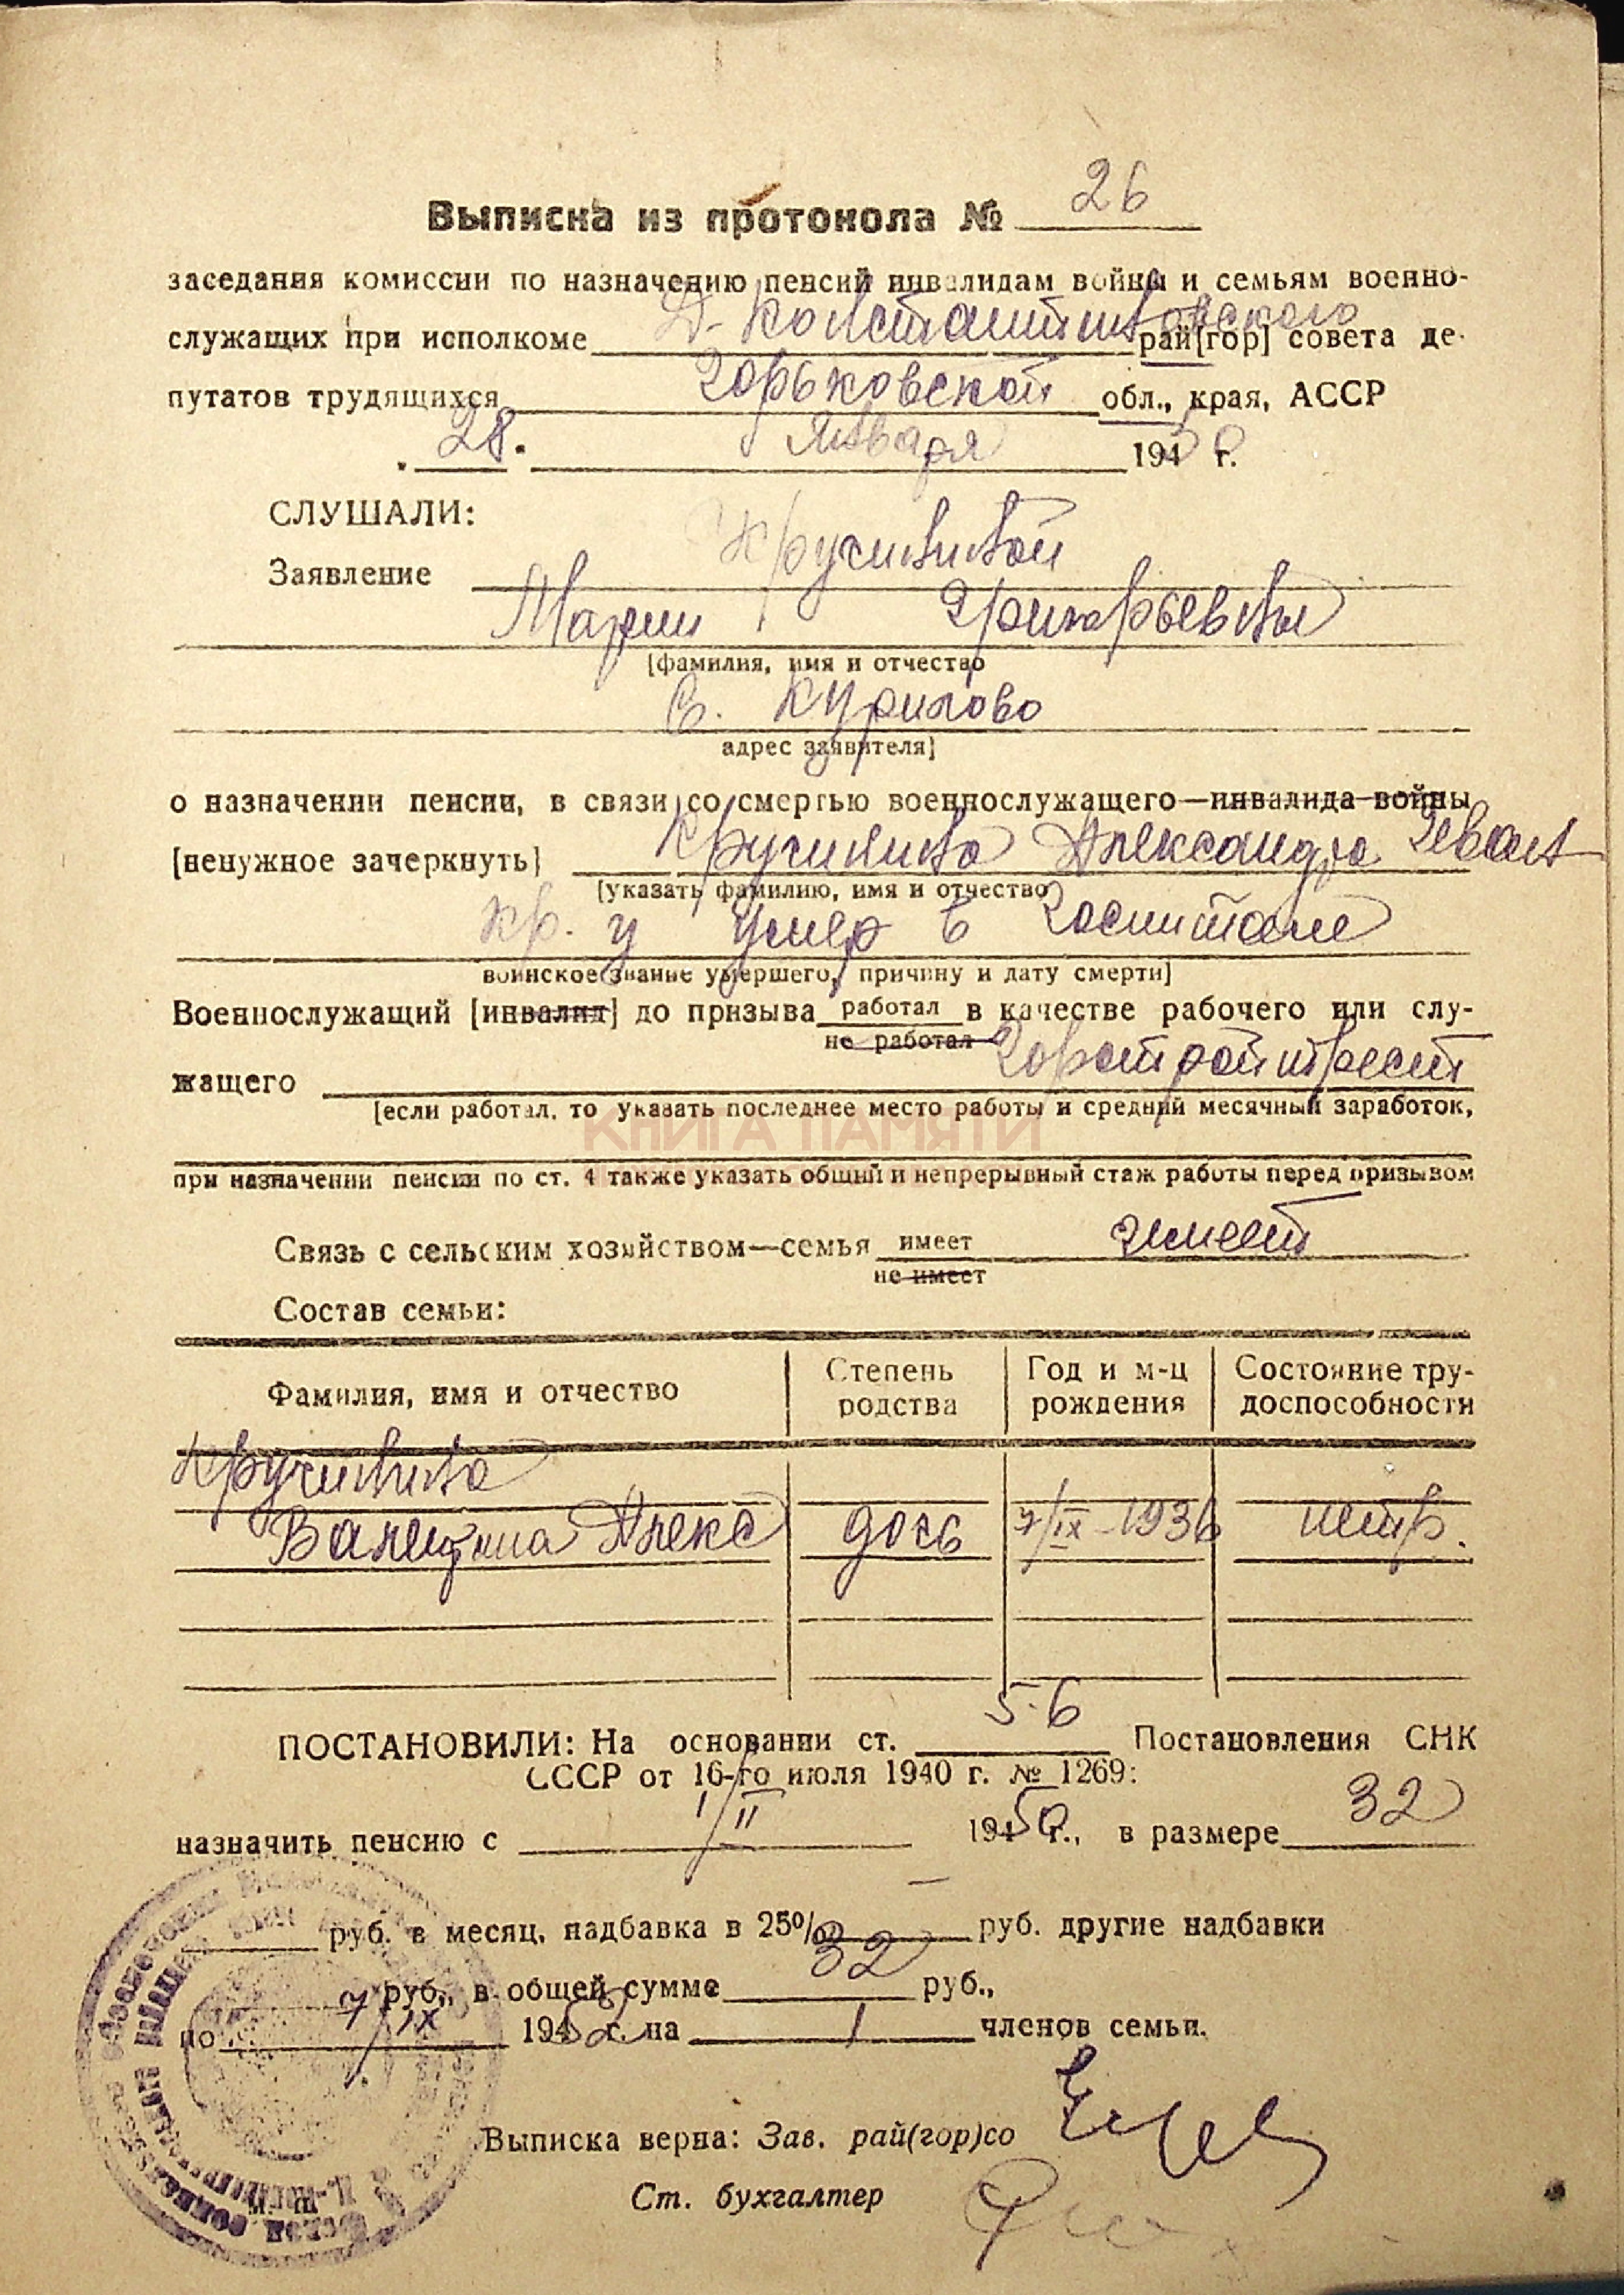 Выписка из протокола № 26
заседания комиссии по назначению пенсий инвалидам войны и семьям военно-
служащих при исполкоме Д-Константиновского рай[гор] совета де-
путатов трудящихся Горьковской обл., края, АССР
„28" января 1950 г.
СЛУШАЛИ:
Заявление Кручининой
Марии Григорьевны
[фамилия, имя и отчество
с. Курилово
адрес заявителя]
о назначении пенсии, в связи со смертью военнослужащего—инвалида войны
[ненужное зачеркнуть] Кручинина Александра Иван
[указать фамилию, имя и отчество
кр. у умер в госпитале
воинское звание умершего, причину и дату смерти]
Военнослужащий [инвалид] до призыва работал в качестве рабочего или слу-
не работал
жащего Горстройтрест
[если работал, то указать последнее место работы и средний месячный заработок,
КНИГА ПАМЯТИ
при назначении пенсии по ст. 4 также указать общий и непрерывный стаж работы перед призывом
Связь с сельским хозяйством—семья имеет имеет
не имеет
Состав семьи:
Фамилия, имя и отчество Степень родства Год и м-ц рождения Состояние тру-доспособности
Кручинина
Валентина Алекс дочь 7/IX-1936 нетр.
ПОСТАНОВИЛИ: На основании ст. 5-6 Постановления СНК
СССР от 16-го июля 1940 г. № 1269:
назначить пенсию с 1/II 1950 г., в размере 32
руб. в месяц, надбавка в 25% — руб. другие надбавки
руб., в общей сумме 32 руб.,
по 7/IX 1952 г. на 1 членов семьи.
Выписка верна: Зав. рай(гор)со
Ст. бухгалтер